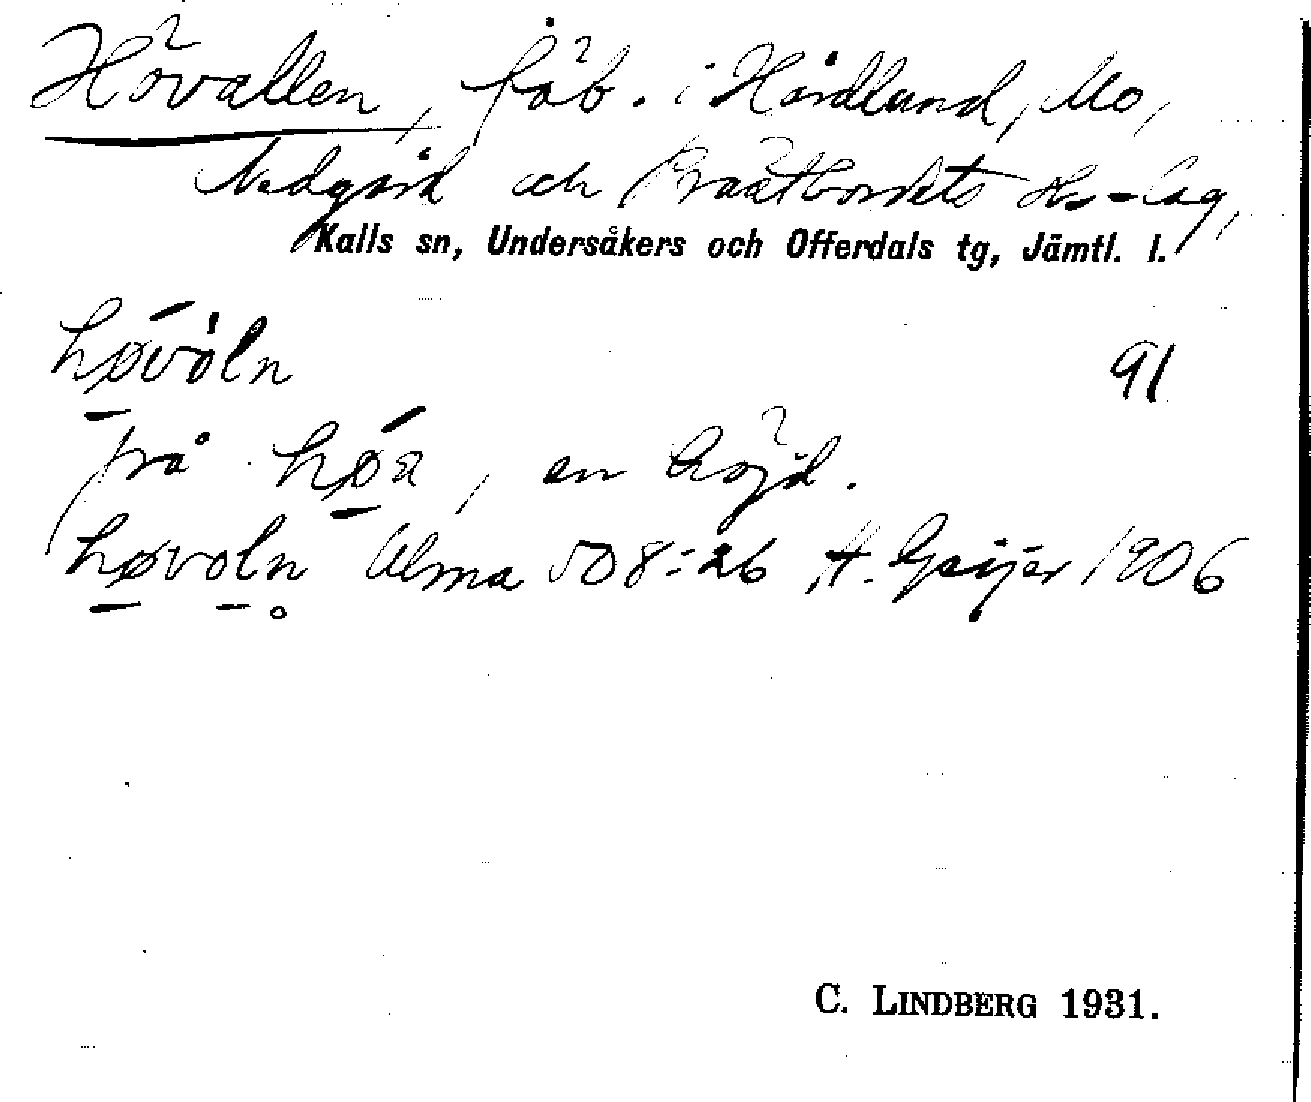 Hövallen, fäb. i Hårdlund, Mo,
Nedgård och Prästbordets sks-lag,
Kalls sn, Undersåkers och Offerdals tg, Jämtl. l.
høvòln 91
på høa, en höjd.
høvoln Ulma 508:26 H. Geijer 1906
C. LINDBERG 1931.